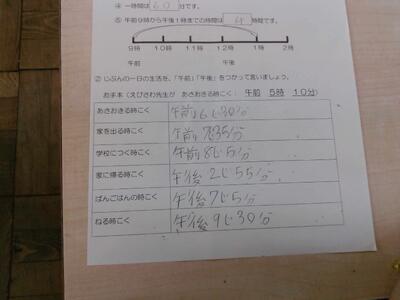 ④ 一時間は 60 分です。
⑤ 午前9時から午後1時までの時間は 4 時間です。
9時 10時 11時 12時 1時 2時
午前 午後
② じぶんの一日の生活を、「午前」「午後」をつかって言いましょう。
お手本（えびさわ先生が あさおきる時こく： 午前 5時 10分）
あさおきる時こく 午前6じ30分
家を出る時こく 午前7じ35分
学校につく時こく 午前8じ5分
家に帰る時こく 午後2じ55分
ばんごはんの時こく 午後7じ5分
ねる時こく 午後9じ30分